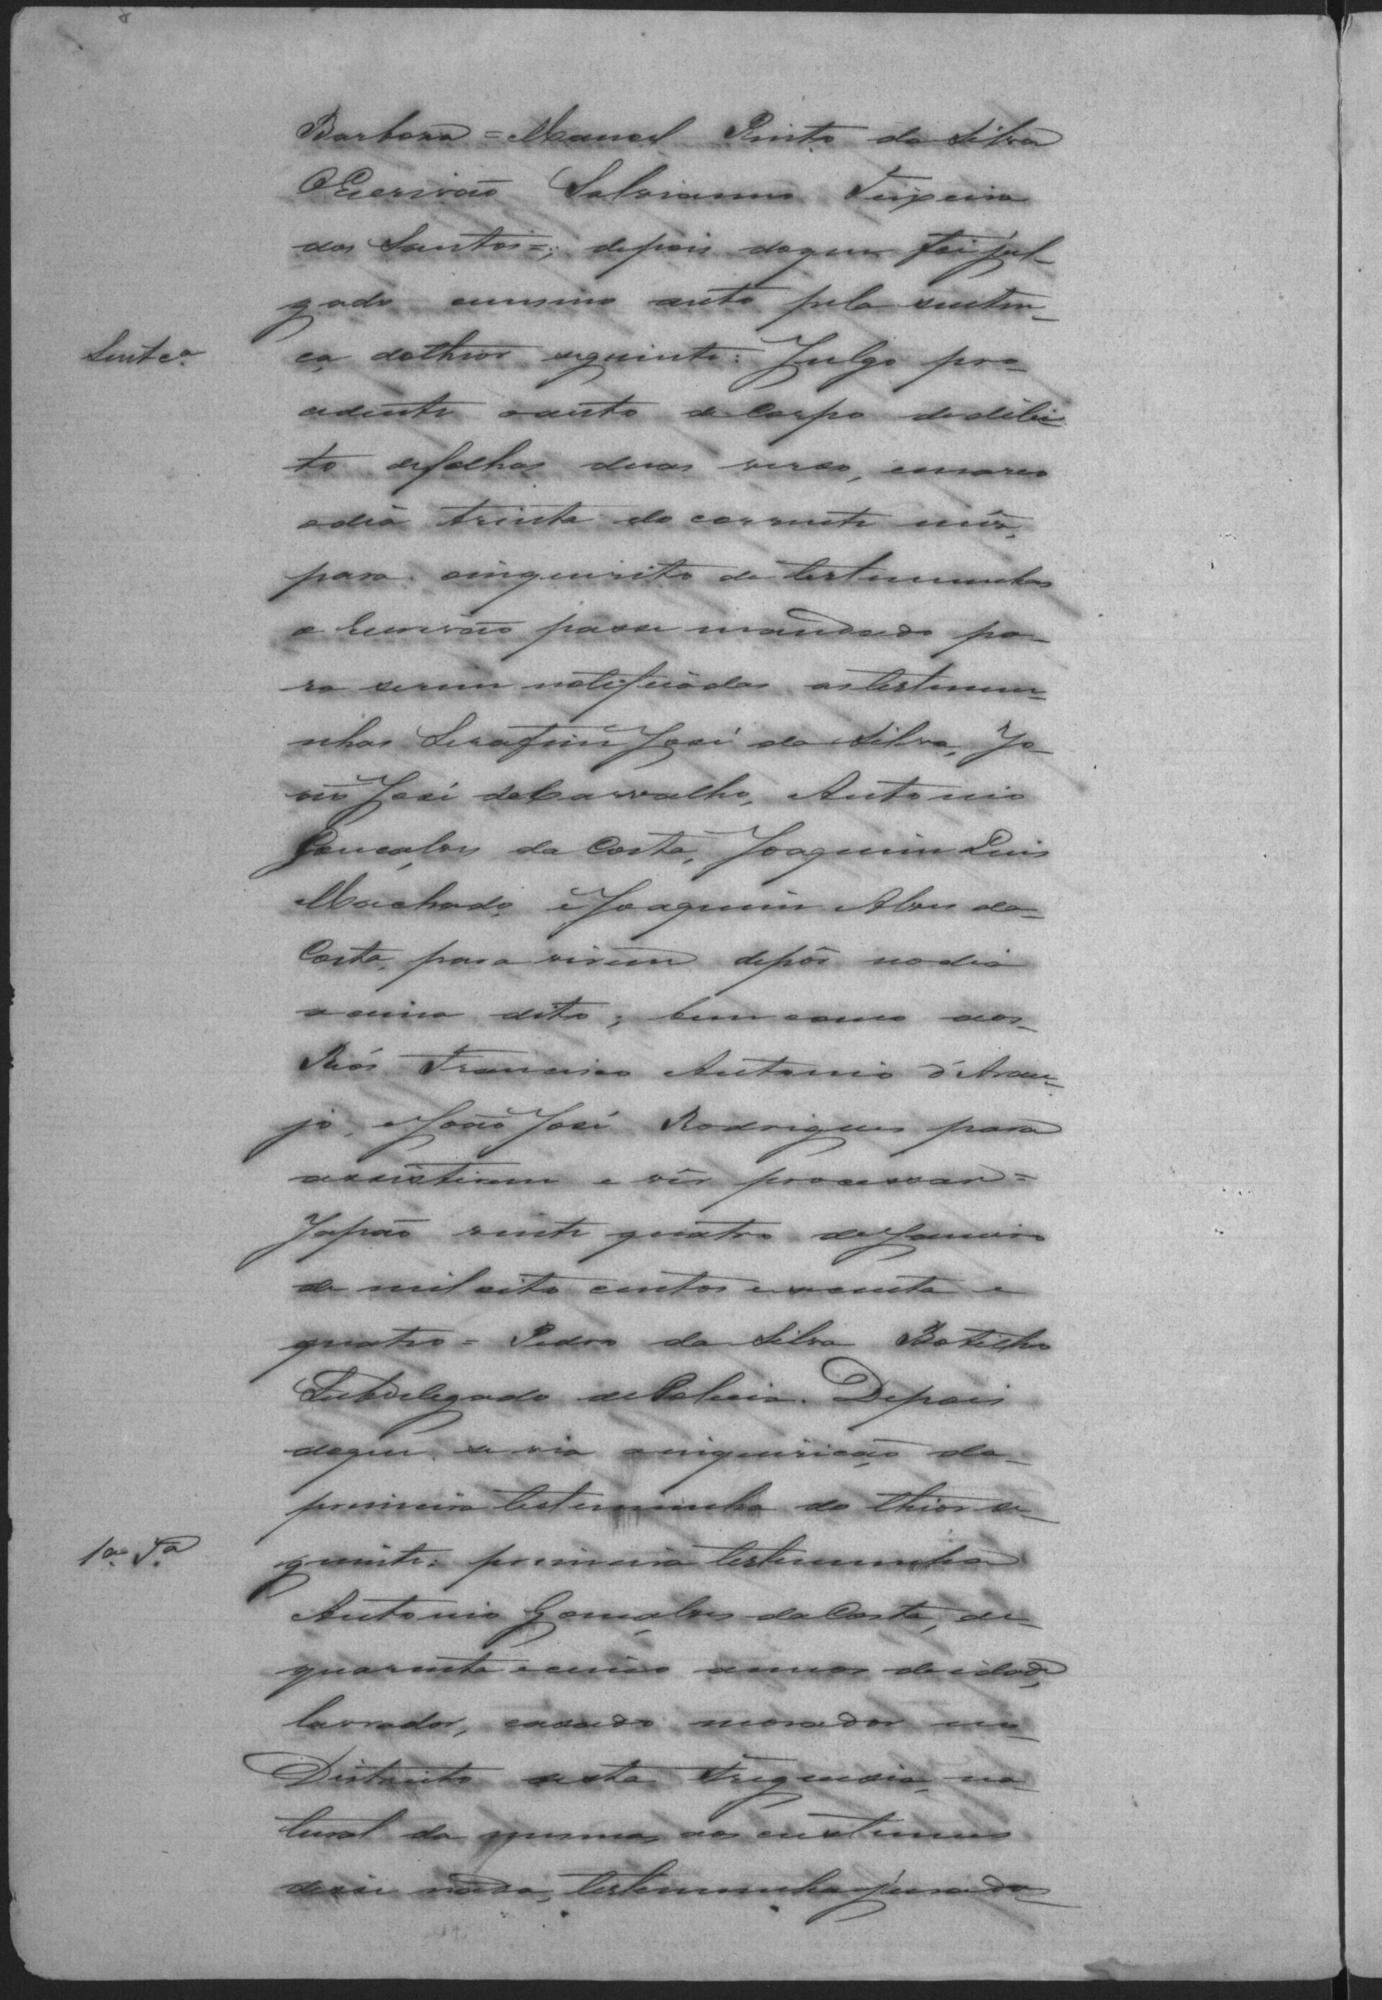 Barboza = Manoel Pinto da Silva
O Escrivão Salvianno Teixeira
dos Santos =; depois doque foi jul-
gado omesmo auto pela senten-
Sentca.
ça dotheor seguinte: Julgo pro-
cedente oauto de Corpo dedilic
to defolhas duas verso, emarco
odia trinta do corrente mês,
para oinquirito de testemunhas
o Escrivão passe mandado pa-
ra serem notificadas astestemu-
nhas Serafim José da Silva, Jo-
ão José deCarvalho, Antonio
Gonçalves da Costa, Joaquim Luis
Machado, eJoaquim Alves da
Costa, para virem depôr nodia
acima dito; bem como aos
Réos Francisco Antonio d'Arau-
jo, eJoão José Rodrigues para
assistirem e vêr processar =
Japão vinte quatro deJaneiro
de mil oito centos esecenta e
quatro = Pedro da Silva Botelho
Subdelegado dePolicia. Depois
doque se via ainquirição da
primeira testemunha do theor se-
1a. Ta.
guinte: primeira testemunha
Antonio Gonçalves daCosta, de
quarenta ecinco annos deidade,
lavrador, casado morador no
Districto desta Freguesia, na
tural da mesma, aos custumes
disse nada, testemunha jurada